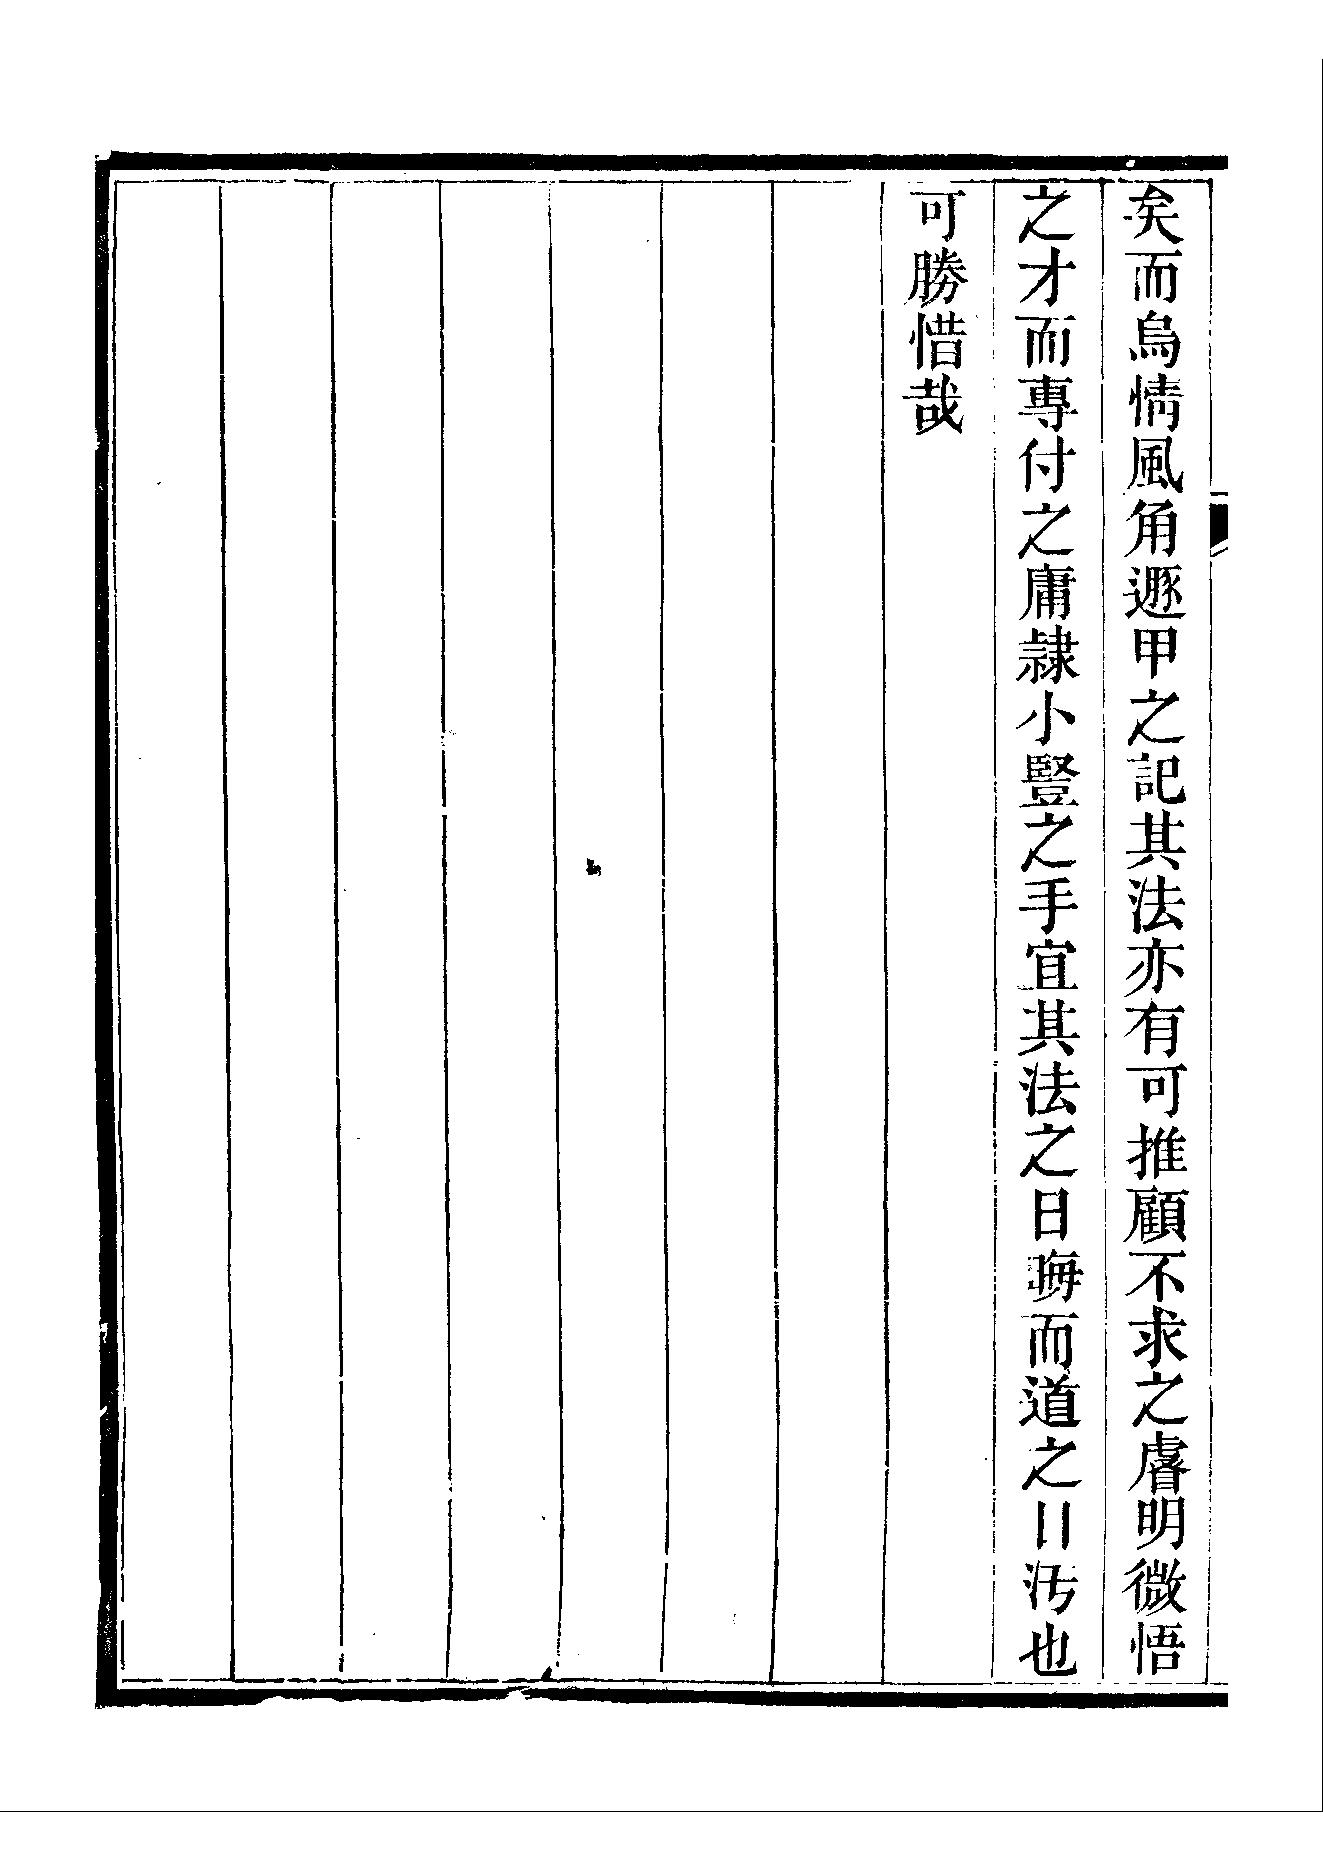 矣而烏情風角遯甲之記其法亦有可推顧不求之睿明微悟
之才而專付之庸隷小豎之手宜其法之日晦而道之日汚也
可勝惜哉